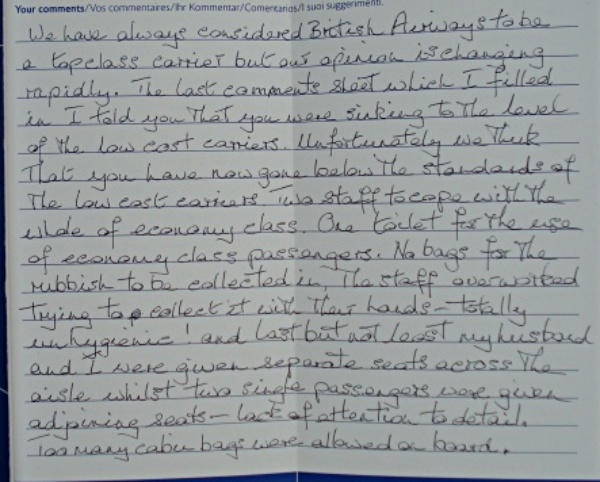 Your comments/Vos commentaires/Ihr Kommentar/Comentarios/I suoi suggerimenti.
We have always considered British Airways to be
a top class carrier but our opinion is changing
rapidly. The last comments sheet which I filled
in I told you that you were sinking to the level
of the low cost carriers. Unfortunately we think
that you have now gone below the standards of
the low cost carriers Two staff to cope with the
whole of economy class. One toilet for the use
of economy class passengers. No bags for the
rubbish to be collected in, The staff overworked
trying to collect it with their hands - totally
unhygienic! and last but not least my husband
and I were given separate seats across the
aisle whilst two single passengers were given
adjoining seats - lack of attention to detail.
Too many cabin bags were allowed on board.